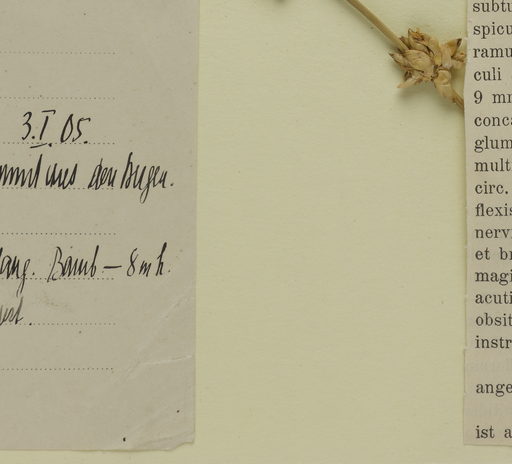 3.I.05.
den Bugen.
Bamb — 8 m h.
subtu
spicu
ramu
culi
9 mm
conca
glum
multi
circ.
flexis
nervi
et br
magi
acuti
obsit
instr
ange
ist a